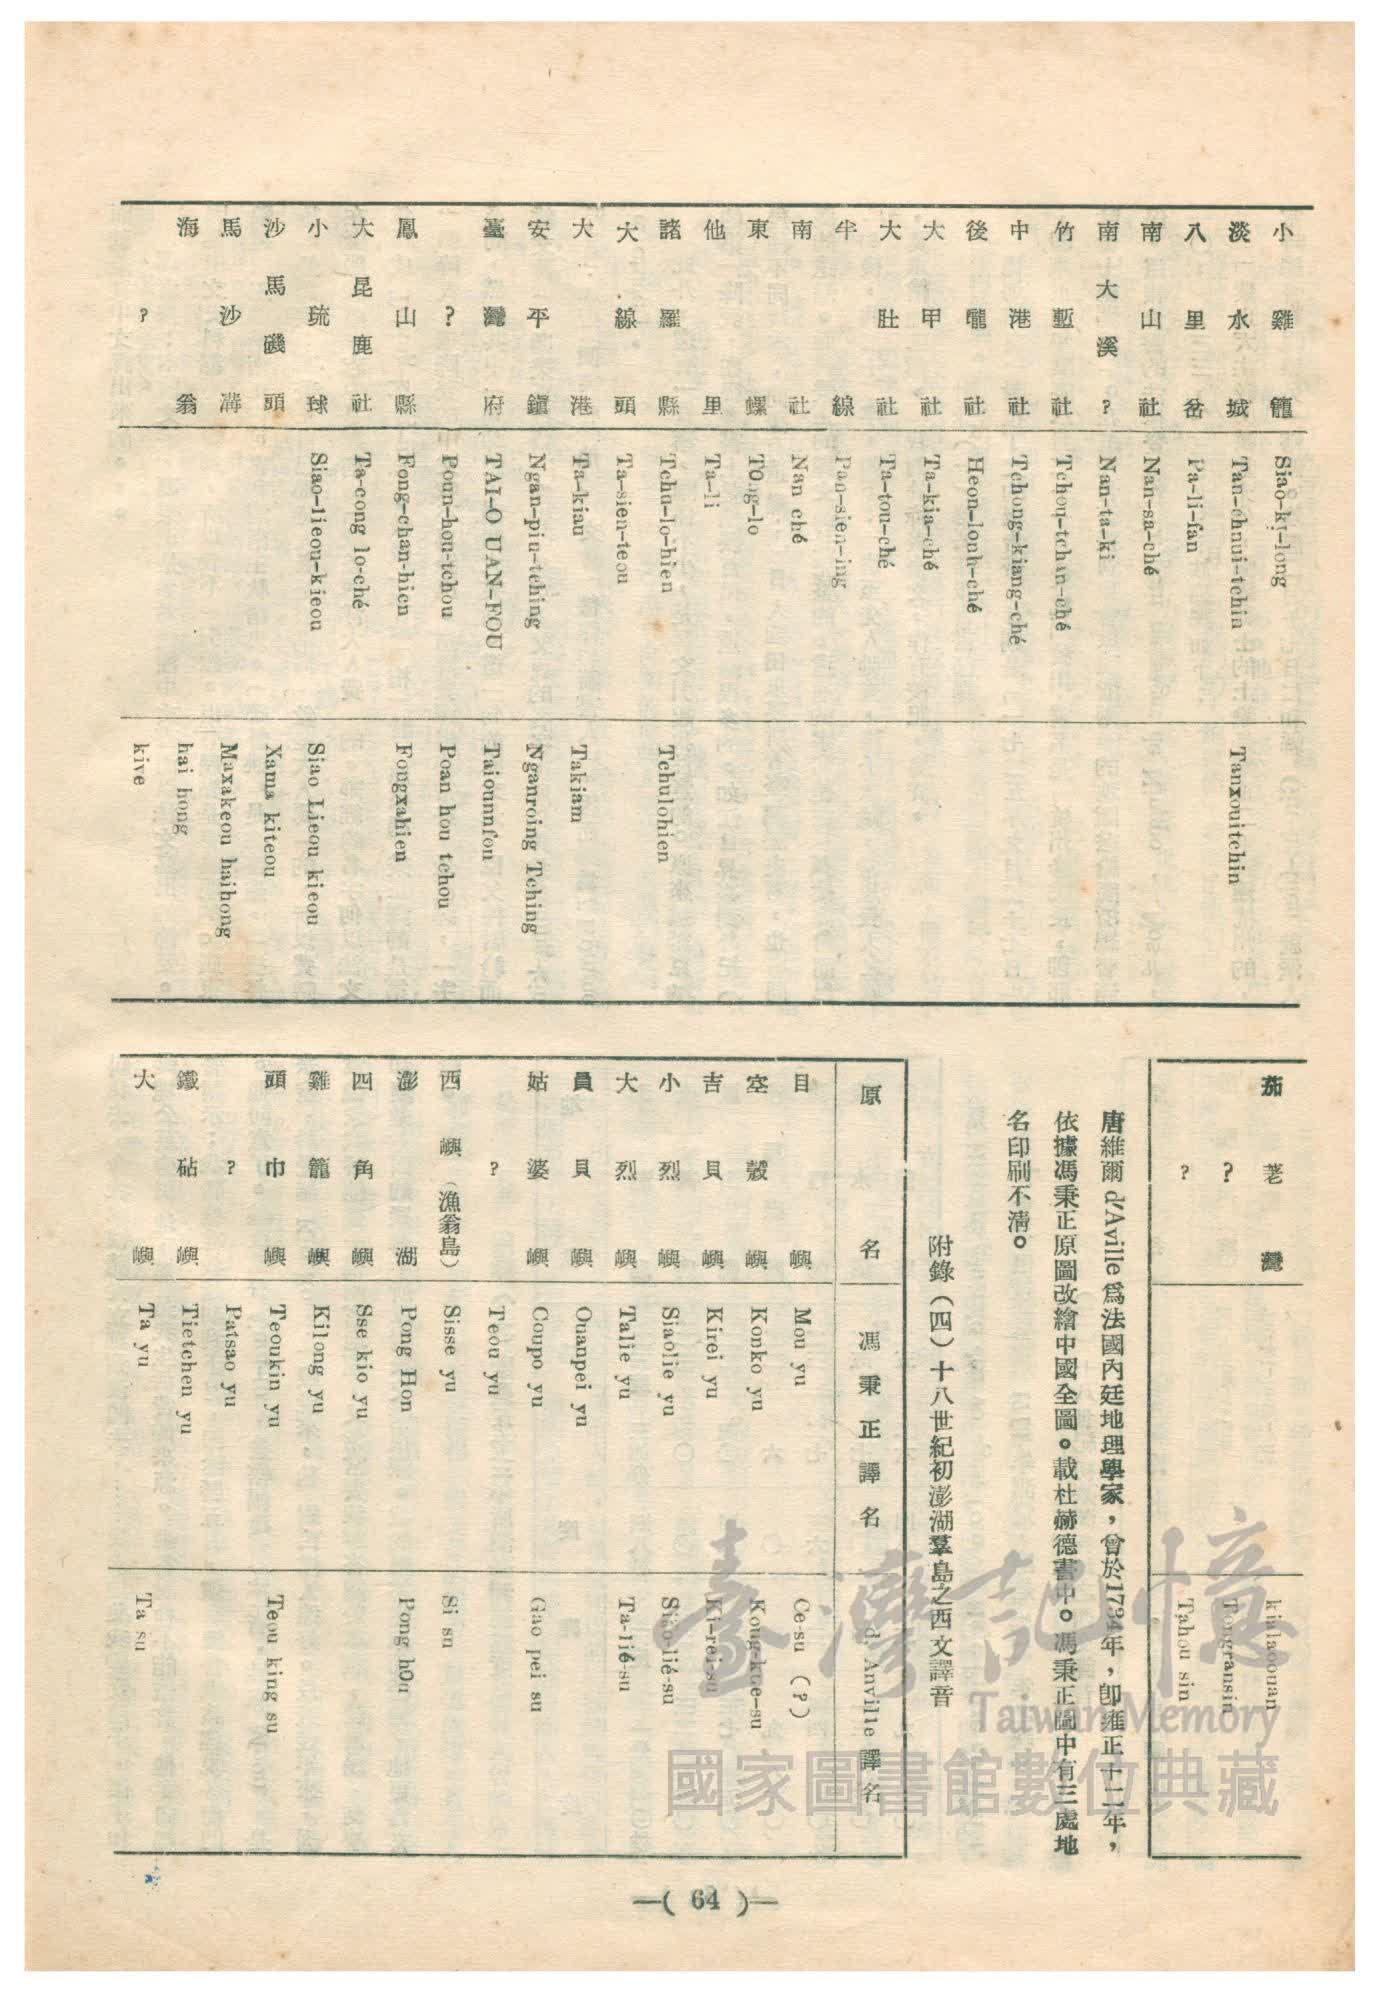 小雞籠 Siao-ki-long
淡水城 Tan-chnui-tchin Tanxouitchin
八里岔 Pa-li-fan
南山社 Nan-sa-ché
南大溪? Nan-ta-ki
竹塹社 Tchou-tchin-ché
中港社 Tchong-kiang-ché
後壠社 Heon-lonh-ché
大甲社 Ta-kia-ché
大肚社 Ta-tou-ché
半線 Pan-sien-ing
南社 Nan ché
東螺 Tong-lo
他里 Ta-li
諸羅縣 Tchu-lo-hien Tchulohien
大線頭 Ta-sien-teou
大港 Ta-kiau Takiam
安平鎭 Ngan-pin-tching Nganroing Tching
臺灣府 TAI-O UAN-FOU Taiounnfou
? Poun-hou-tchou Poan hou tchou
鳳山縣 Fong-chan-hien Fougxahien
大昆鹿社 Ta-cong lo-ché
小琉球 Siao-lieou-kieou Siao Lieou kieou
沙馬磯頭 Xama kiteou
馬沙溝 Maxakeou haihong
海翁 hai hong
? kive
茄荖灣 kialaoouan
? Tongransin
? Tahou sin
唐維爾 d'Aville 爲法國內廷地理學家，曾於1734年，卽雍正十二年，
依據馮秉正原圖改繪中國全圖。載杜赫德書中。馮秉正圖中有三處地
名印刷不淸。
附錄（四）十八世紀初澎湖羣島之西文譯音
原名 馮秉正譯名 d. Anville譯名
目嶼 Mou yu Ce-su (?)
空殼嶼 Konko yu Koug-kue-su
吉貝嶼 Kirei yu Ki-rei-su
小烈嶼 Siaolie yu Siao-lié-su
大烈嶼 Talie yu Ta-lié-su
員貝嶼 Ouanpei yu
姑婆嶼 Coupo yu Gao pei su
? Teou yu
西嶼（漁翁島） Sisse yu Si su
澎湖 Pong Hon Pong hou
四角嶼 Sse kio yu
雞籠嶼 Kilong yu
頭巾嶼 Teoukin yu Teou king su
? Patsao yu
鐵砧嶼 Tietchen yu
大嶼 Ta yu Ta su
—( 64 )—
臺灣記憶
Taiwan Memory
國家圖書館數位典藏